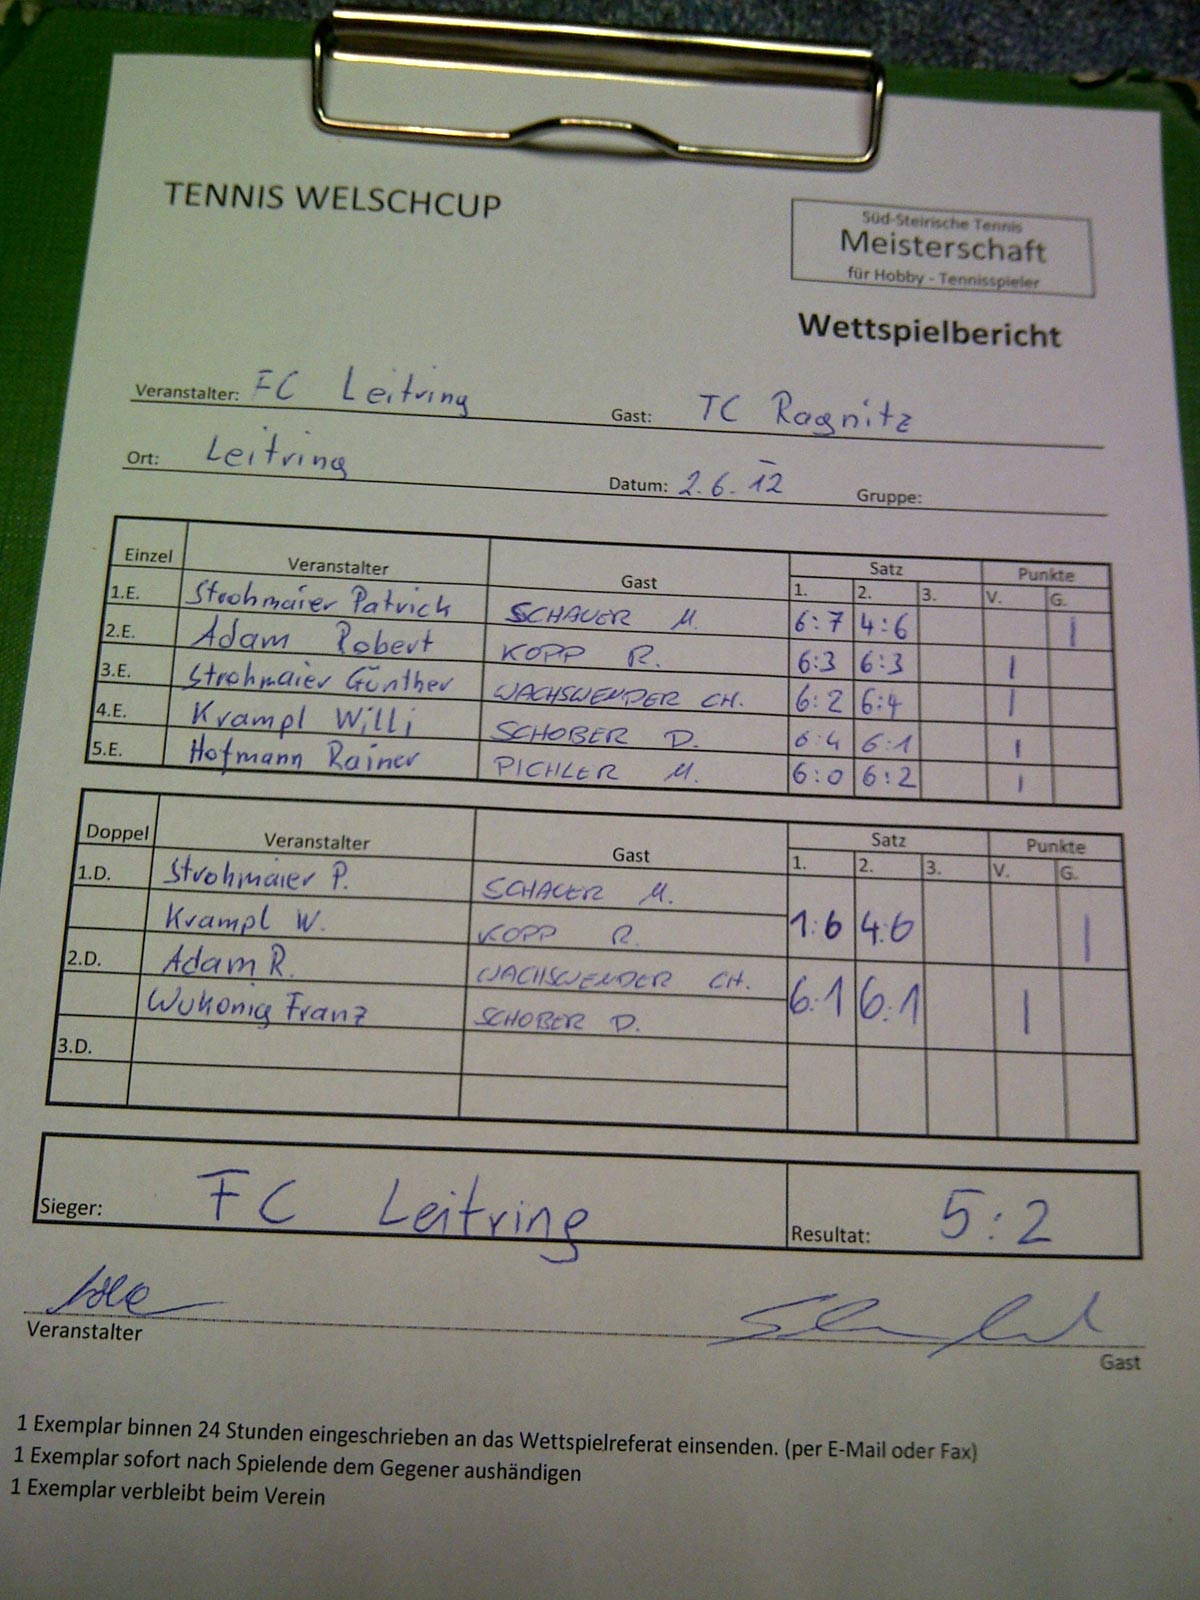 TENNIS WELSCHCUP
Süd-Steirische Tennis
Meisterschaft
für Hobby - Tennisspieler
Wettspielbericht
Veranstalter: FC Leitring Gast: TC Ragnitz
Ort: Leitring Datum: 2.6.12 Gruppe:
Einzel Veranstalter Gast Satz Punkte
1. 2. 3. V. G.
1.E. Strohmaier Patrick SCHAUER M. 6:7 4:6 1
2.E. Adam Robert KOPP R. 6:3 6:3 1
3.E. Strohmaier Günther WACHSWENDER CH. 6:2 6:4 1
4.E. Krampl Willi SCHOBER D. 6:4 6:1 1
5.E. Hofmann Rainer PICHLER M. 6:0 6:2 1
Doppel Veranstalter Gast Satz Punkte
1. 2. 3. V. G.
1.D. Strohmaier P. SCHAUER M.
Krampl W. KOPP R. 1:6 4:6 1
2.D. Adam R. WACHSWENDER CH.
Wukonig Franz SCHOBER D. 6:1 6:1 1
3.D.
Sieger: FC Leitring Resultat: 5:2
Veranstalter Gast
1 Exemplar binnen 24 Stunden eingeschrieben an das Wettspielreferat einsenden. (per E-Mail oder Fax)
1 Exemplar sofort nach Spielende dem Gegener aushändigen
1 Exemplar verbleibt beim Verein